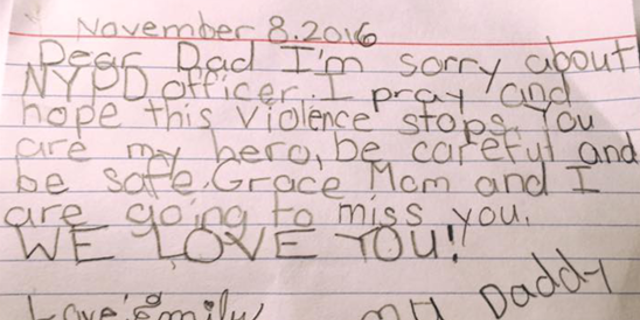 November 8.2016
Dear Dad I'm sorry about
NYPD officer. I pray and
hope this violence stops. You
are my hero, be careful and
be safe. Grace Mom and I
are going to miss you.
WE LOVE YOU!
Love Emily
my Daddy